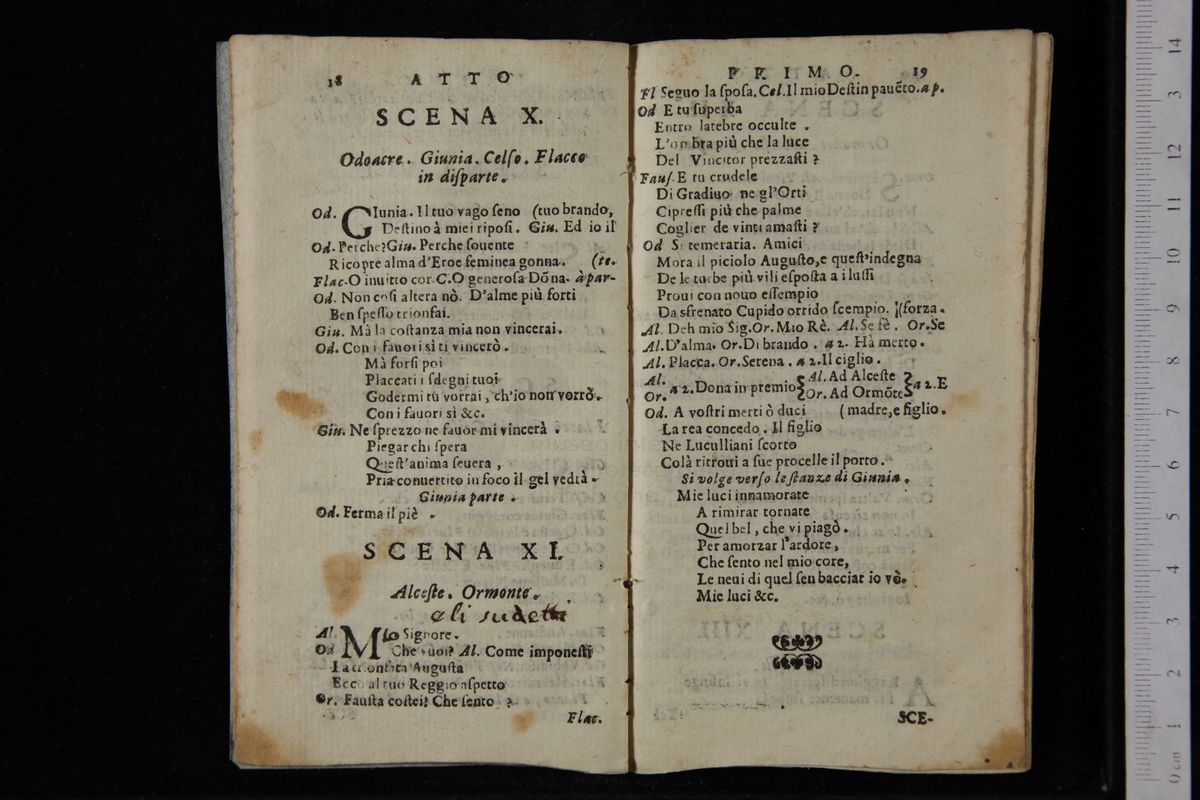 18 ATTO
SCENA X.
Odoacre. Giunia. Celso. Flacco
in disparte.
Od. GIunia. Il tuo vago seno (tuo brando,
Destino à miei riposi. Giu. Ed io il
Od. Perche? Giu. Perche souente
Ricopre alma d'Eroe feminea gonna. (te.
Flac. O inuitto cor. C. O generosa Dõna. à par-
Od. Non così altera nò. D'alme più forti
Ben spesso trionfai.
Giu. Mà la costanza mia non vincerai.
Od. Con i fauori sì ti vincerò.
Mà forsi poi
Placcati i sdegni tuoi
Godermi tù vorrai, ch'io non vorrò.
Con i fauori sì &c.
Giu. Ne sprezzo ne fauor mi vincerà.
Piegar chi spera
Quest'anima seuera,
Pria conuertito in foco il gel vedrà.
Giunia parte.
Od. Ferma il piè.
SCENA XI.
Alceste. Ormonte.
e li sudetti
Al. MIo Signore.
Od Che vuoi? Al. Come imponesti
La trionfata Augusta
Ecco al tuo Reggio aspetto
Or. Fausta costei? Che sento?
Flac.
PRIMO. 19
Fl Seguo la sposa. Cel. Il mio Destin pauẽto. a p.
Od E tu superba
Entro latebre occulte.
L'ombra più che la luce
Del Vincitor prezzasti?
Faus. E tu crudele
Di Gradiuo ne gl'Orti
Cipressi più che palme
Coglier de vinti amasti?
Od Sì temeraria. Amici
Mora il piciolo Augusto, e quest'indegna
De le turbe più vili esposta a i lussi
Proui con nouo essempio
Da sfrenato Cupido orrido scempio. (forza.
Al. Deh mio Sig. Or. Mio Rè. Al. Se fè. Or. Se
Al. D'alma. Or. Di brando. a 2. Hà merto.
Al. Placca. Or. Serena. a 2. Il ciglio.
Al. Or. a 2. Dona in premio { Al. Ad Alceste Or. Ad Ormõte } a 2. E
Od. A vostri merti ò duci (madre, e figlio.
La rea concedo. Il figlio
Ne Luculliani scorto
Colà ritroui a sue procelle il porto.
Si volge verso le stanze di Giunia.
Mie luci innamorate
A rimirar tornate
Quel bel, che vi piagò.
Per amorzar l'ardore,
Che sento nel mio core,
Le neui di quel sen bacciar io vò.
Mie luci &c.
SCE-